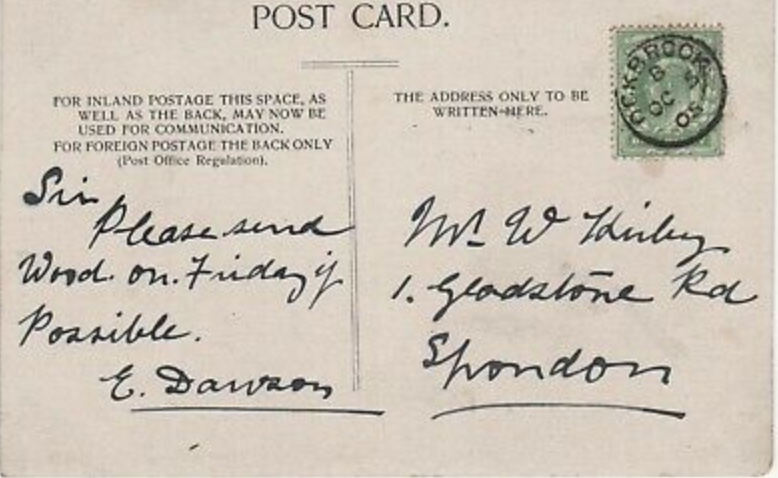 POST CARD.
FOR INLAND POSTAGE THIS SPACE, AS
WELL AS THE BACK, MAY NOW BE
USED FOR COMMUNICATION.
FOR FOREIGN POSTAGE THE BACK ONLY
(Post Office Regulation).
THE ADDRESS ONLY TO BE
WRITTEN HERE.
OCKBROOK
OC
05
Sir
Please send
Wood. on. Friday if
Possible.
E. Dawson
Mr W Kirby
1. Gladstone Rd
Spondon